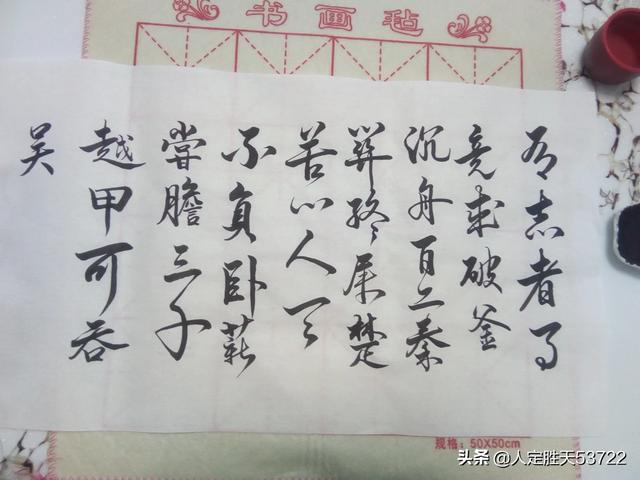 书画毡
有志者事
竟成破釜
沉舟百二秦
關終属楚
苦心人天
不負卧薪
嘗膽三千
越甲可吞
吴
规格：50X50cm
头条 @人定胜天53722